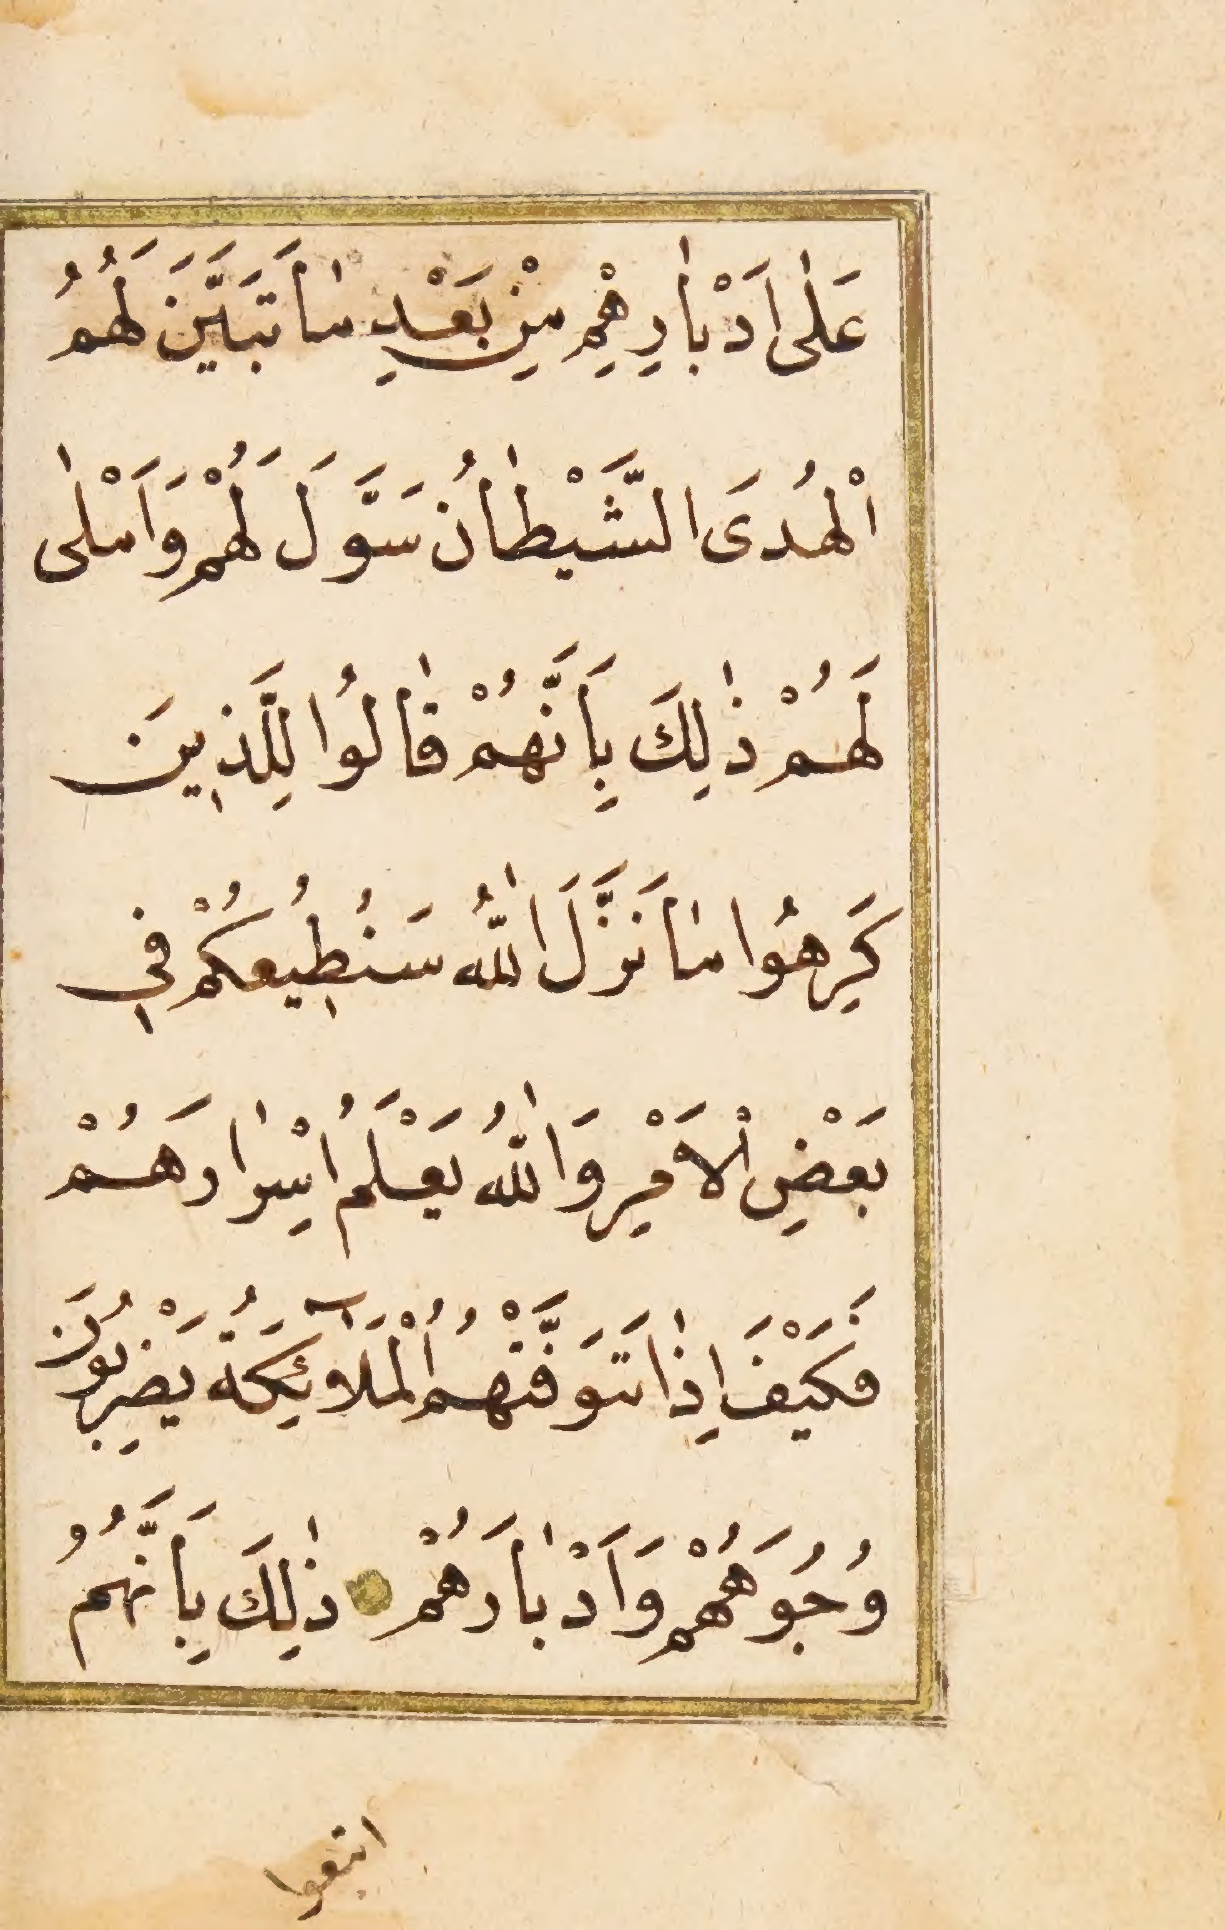 عَلٰى اَدْبٰارِهِمْ مِنْ بَعْدِ مٰا تَبَيَّنَ لَهُمُ
اْلهُدَى الشَّيْطٰانُ سَوَّلَ لَهُمْ وَاَمْلٰى
لَهُمْ ذٰلِكَ بِاَنَّهُمْ قٰالُوا لِلَّذِينَ
كَرِهُوا مٰا نَزَّلَ اللّٰهُ سَنُطِيعُكُمْ فِي
بَعْضِ اْلاَمْرِ وَاللّٰهُ يَعْلَمُ اِسْرٰارَهُمْ
فَكَيْفَ اِذٰا تَوَفَّتْهُمُ اْلمَلَآئِكَةُ يَضْرِبُونَ
وُجُوهَهُمْ وَاَدْبٰارَهُمْ ذٰلِكَ بِاَنَّهُمُ
اتبعوا